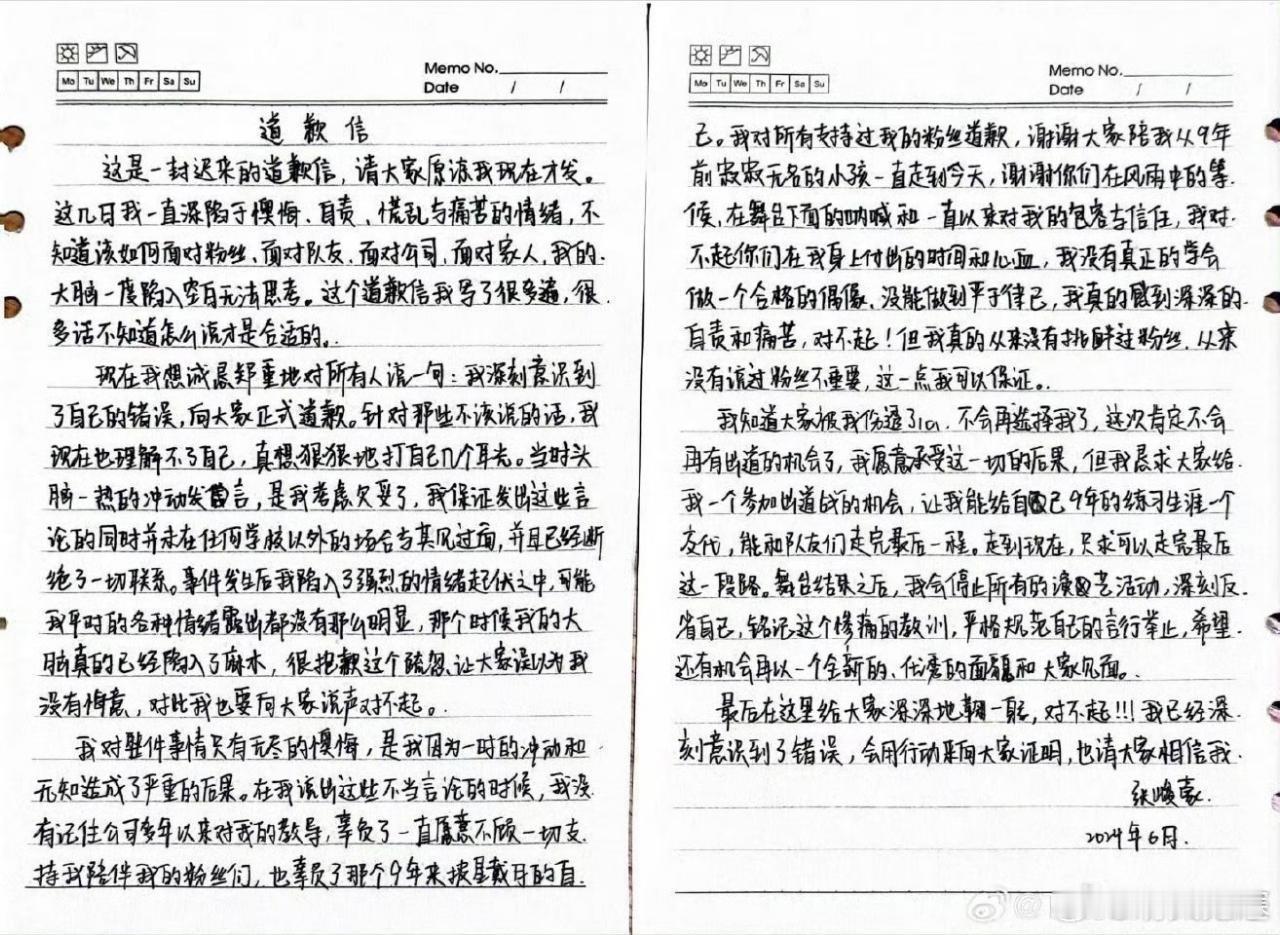 Mo Tu We Th Fr Sa Su
Memo No.
Date / /
道歉信
这是一封迟来的道歉信，请大家原谅我现在才发。
这几日我一直深陷于懊悔、自责、慌乱与痛苦的情绪，不
知道该如何面对粉丝、面对队友、面对公司、面对家人，我的
大脑一度陷入空白无法思考。这个道歉信我写了很多遍，很
多话不知道怎么说才是合适的。
现在我想诚恳郑重地对所有人说一句：我深刻意识到
了自己的错误，向大家正式道歉。针对那些不该说的话，我
现在也理解不了自己，真想狠狠地打自己几个耳光。当时头
脑一热的冲动发言，是我考虑欠妥了，我保证发出这些言
论的同时并未在任何学校以外的场合与其见过面，并且已经断
绝了一切联系。事件发生后我陷入了强烈的情绪起伏之中，可能
我平时的各种情绪露出都没有那么明显，那个时候我的大
脑真的已经陷入了麻木，很抱歉这个疏忽，让大家误以为我
没有悔意，对比我也要向大家说声对不起。
我对整件事情只有无尽的懊悔，是我因为一时的冲动和
无知造成了严重的后果。在我说出这些不当言论的时候，我没
有记住公司多年以来对我的教导，辜负了一直愿意不顾一切支
持我陪伴我的粉丝们，也辜负了那个9年来披星戴月的自
Mo Tu We Th Fr Sa Su
Memo No.
Date / /
己。我对所有支持过我的粉丝道歉，谢谢大家陪我从9年
前寂寂无名的小孩一直走到今天，谢谢你们在风雨中的等
候、在舞台下面的呐喊和一直以来对我的包容与信任，我对
不起你们在我身上付出的时间和心血，我没有真正的学会
做一个合格的偶像、没能做到严于律己，我真的感到深深的
自责和痛苦，对不起！但我真的从来没有挑衅过粉丝、从来
没有说过粉丝不重要，这一点我可以保证。
我知道大家被我伤透了心，不会再选择我了，这次肯定不会
再有出道的机会了，我愿意承受这一切的后果，但我恳求大家给
我一个参加出道战的机会，让我能给自己9年的练习生涯一个
交代，能和队友们走完最后一程。走到现在，只求可以走完最后
这一段路。舞台结束之后，我会停止所有的演艺活动，深刻反
省自己，铭记这个惨痛的教训，严格规范自己的言行举止，希望
还有机会再以一个全新的、优秀的面貌和大家见面。
最后在这里给大家深深地鞠一躬，对不起!!! 我已经深
刻意识到了错误，会用行动来向大家证明，也请大家相信我。
张峻豪.
2024年6月.